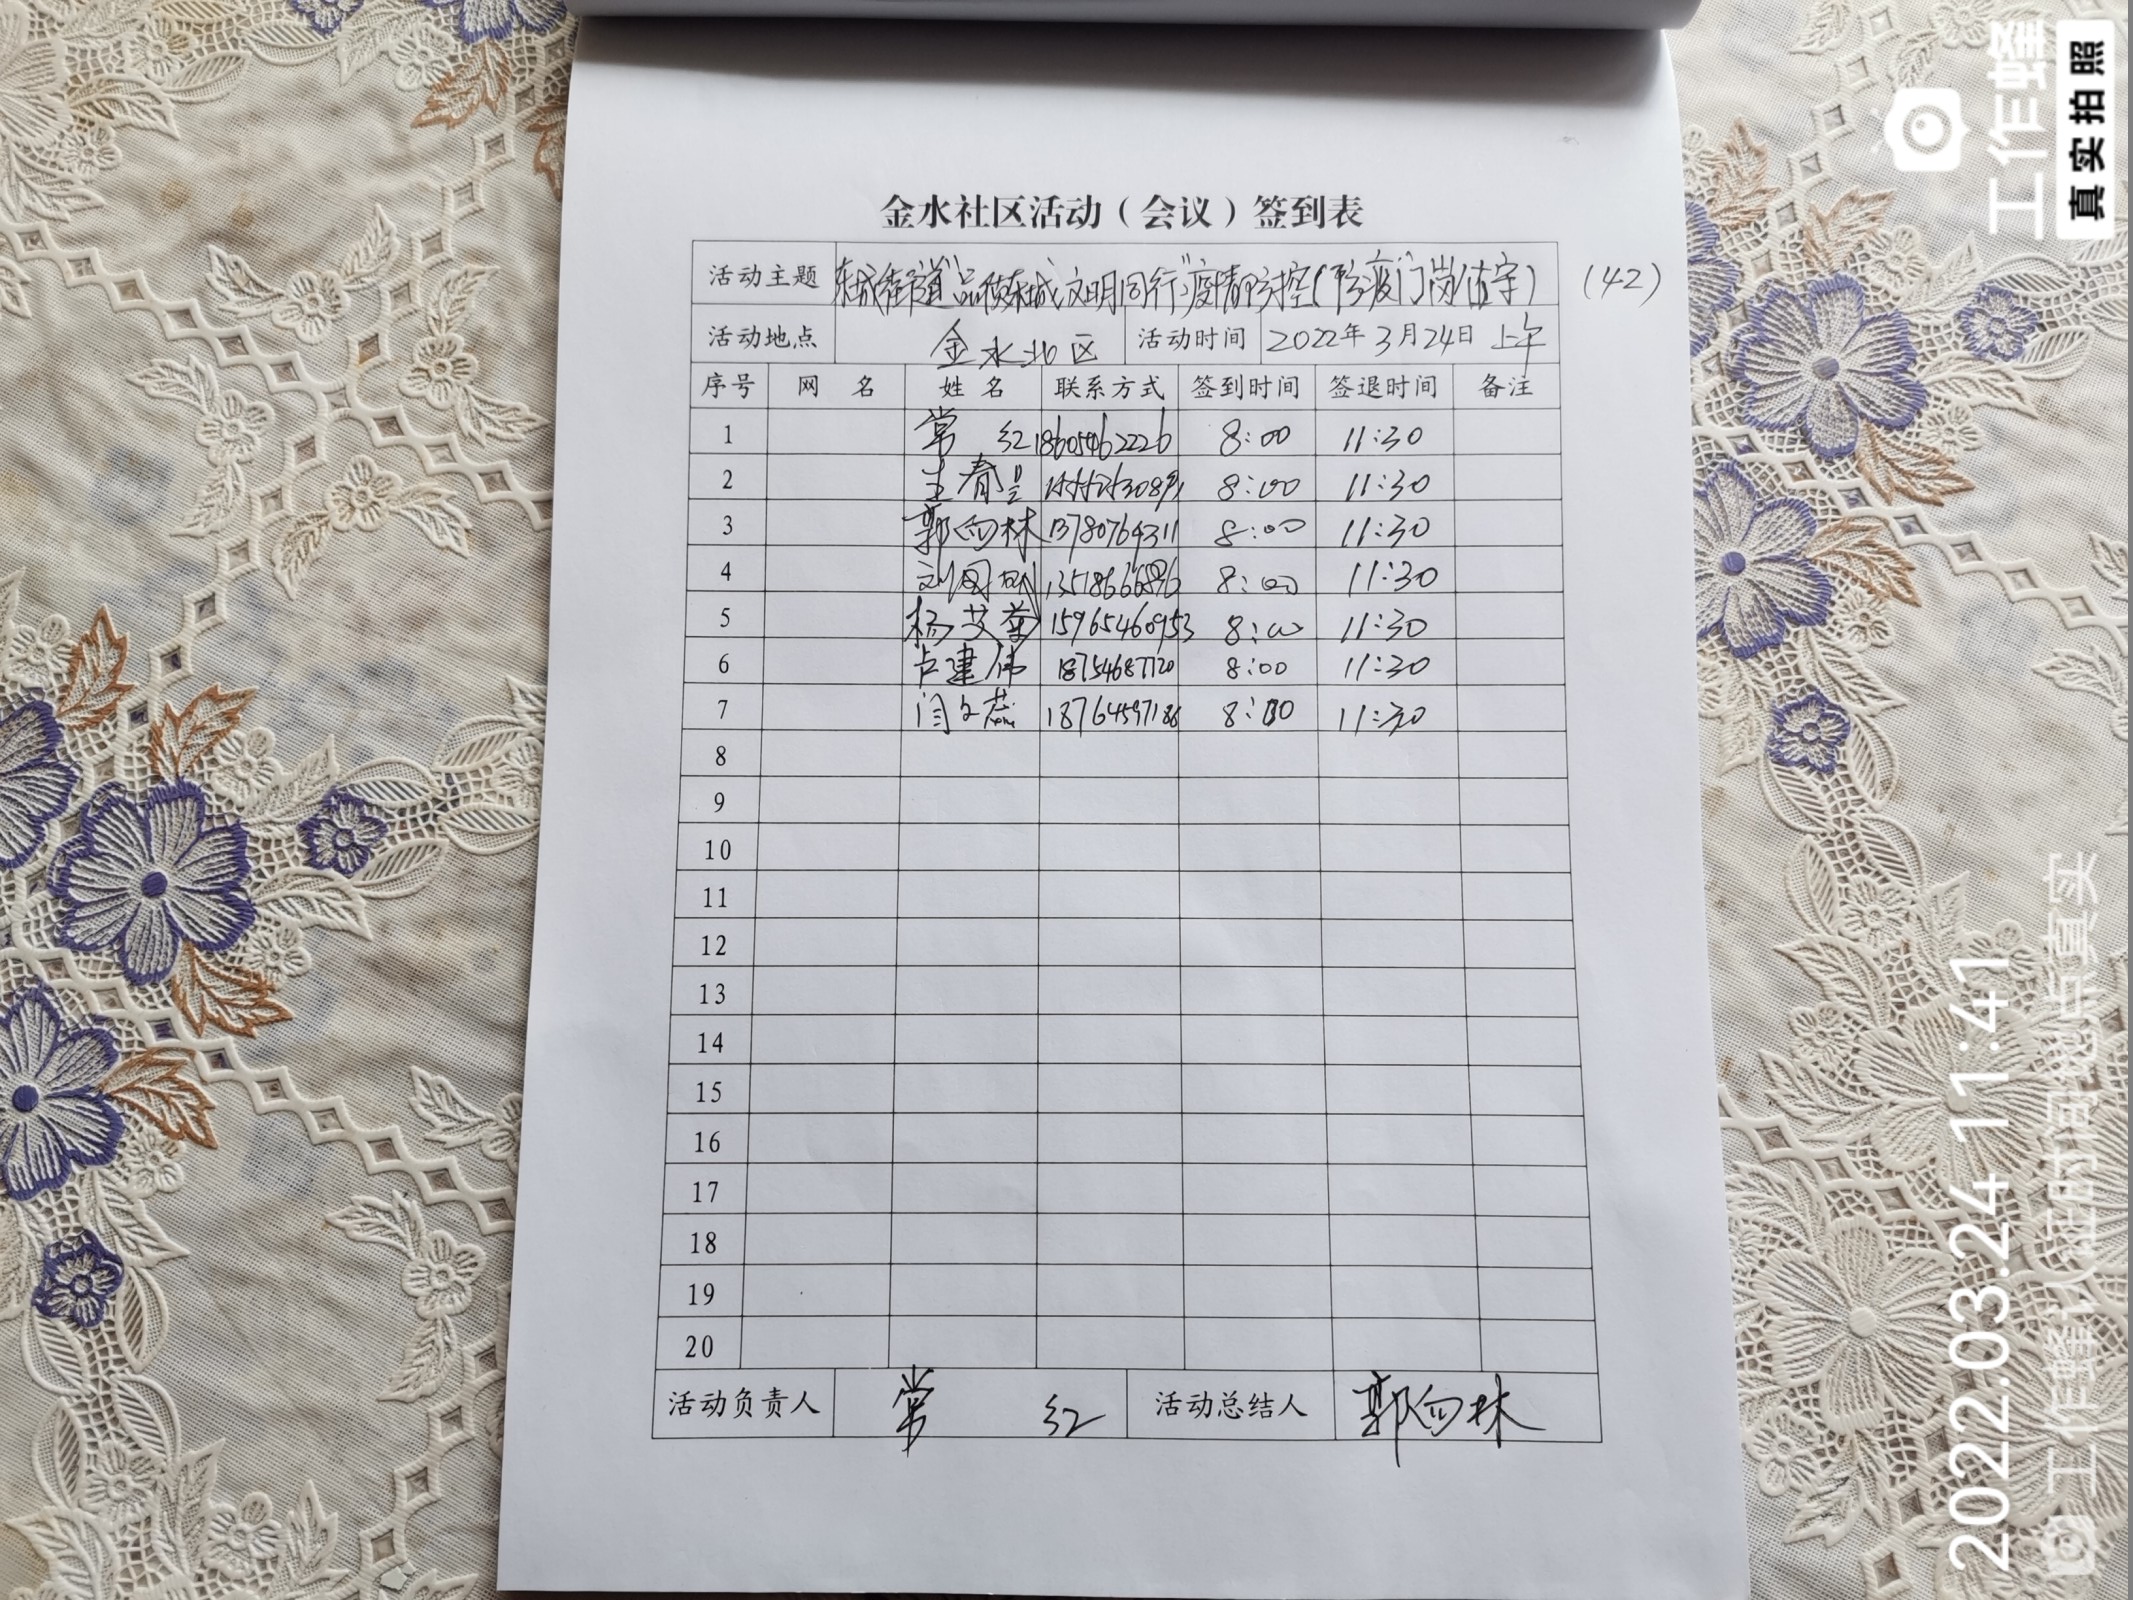 金水社区活动（会议）签到表
活动主题 东城街道"品质东城 文明同行"疫情防控(防疫门岗值守) (42)
活动地点 金水北区 活动时间 2022年3月24日 上午
序号 网 名 姓 名 联系方式 签到时间 签退时间 备注
1 常 红 18605462226 8:00 11:30
2 王春 8:00 11:30
3 郭向林 13780764311 8:00 11:30
4 刘国 8:00 11:30
5 杨艾菊 15965460953 8:00 11:30
6 卢建伟 18754687720 8:00 11:30
7 闫文蕊 18764597186 8:00 11:30
8
9
10
11
12
13
14
15
16
17
18
19
20
活动负责人 常 红 活动总结人 郭向林
工作蜂
真实拍照
2022.03.24 11:41